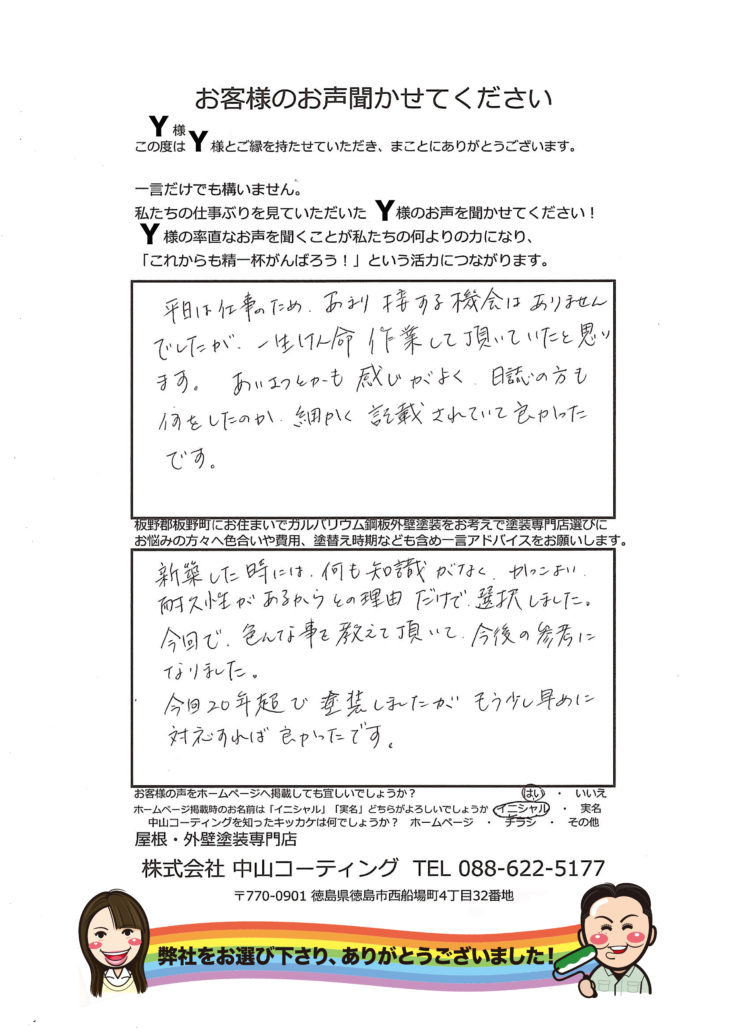 お客様のお声聞かせてください
Y 様
この度は Y 様とご縁を持たせていただき、まことにありがとうございます。
一言だけでも構いません。
私たちの仕事ぶりを見ていただいた Y 様のお声を聞かせてください！
Y 様の率直なお声を聞くことが私たちの何よりの力になり、
「これからも精一杯がんばろう！」という活力につながります。
平日は仕事のため、あまり接する機会はありません
でしたが、一生けん命作業して頂いていたと思い
ます。 あいさつとかも感じがよく、日誌の方も
何をしたのか、細かく記載されていて良かった
です。
板野郡板野町にお住まいでガルバリウム鋼板外壁塗装をお考えで塗装専門店選びに
お悩みの方々へ色合いや費用、塗替え時期なども含め一言アドバイスをお願いします。
新築した時には、何も知識がなく、かっこよい、
耐久性があるからとの理由だけで選択しました。
今回で、色んな事を教えて頂いて、今後の参考に
なりました。
今回20年超で塗装しましたがもう少し早めに
対応すれば良かったです。
お客様の声をホームページへ掲載しても宜しいでしょうか？ はい ・ いいえ
ホームページ掲載時のお名前は「イニシャル」「実名」どちらがよろしいでしょうか イニシャル ・ 実名
中山コーティングを知ったキッカケは何でしょうか？ ホームページ ・ チラシ ・ その他
屋根・外壁塗装専門店
株式会社 中山コーティング TEL 088-622-5177
〒770-0901 徳島県徳島市西船場町4丁目32番地
弊社をお選び下さり、ありがとうございました！